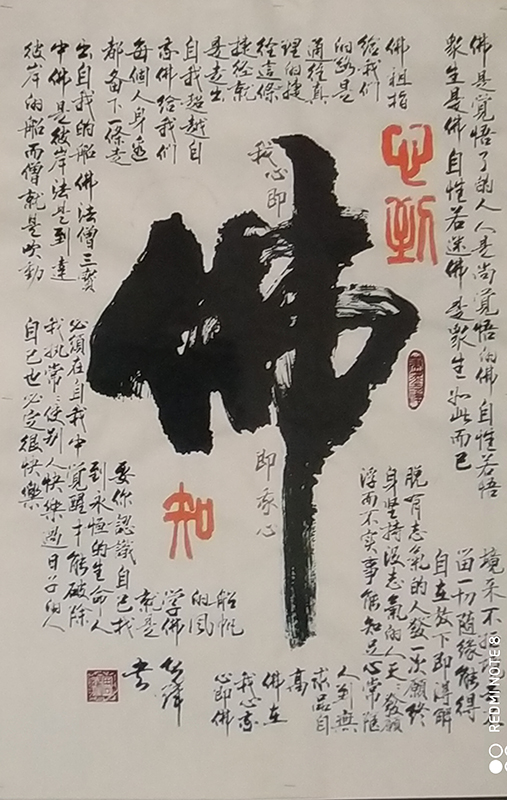 佛是覺悟了的人人是尚覺悟的佛自性若悟
眾生是佛自性若迷佛是眾生如此而已
佛祖指
給我們
的路是
通往真
理的捷
徑這條
捷徑就
是走出
自我超越自
我佛給我們
每個人身邊
都备下一條走
出自我的船佛法僧三寶
中佛是彼岸法是到達
彼岸的船而僧就是吹動
船帆
的風
学佛
就是
要你認識自己找
到永恒的生命人
必須在自我中覺醒才能破除
我执常々使别人快樂過日子的人
自己也必定很快樂
我心即
佛
即我心
知
境来不拒
留一切随缘能得
自在放下即得解
脱有志氣的人發一次願终
身堅持没志氣的人天々發願
浮而不实事能知足心常愜
人到無
求品自
高
佛在
我心我
心即佛
书
REDMI NOTE 8